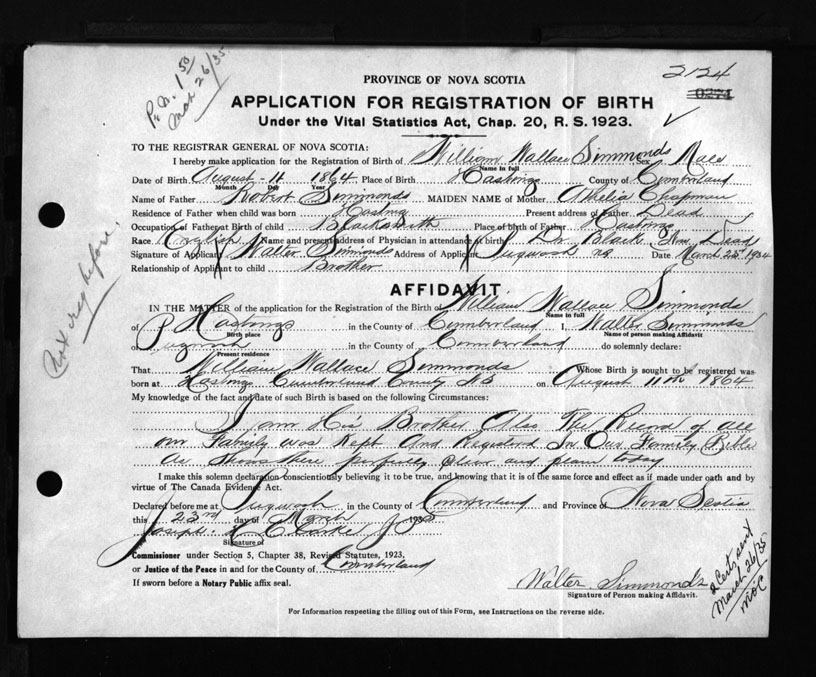 P. N. 1.50
Mar 26/35
2124
0274
PROVINCE OF NOVA SCOTIA
APPLICATION FOR REGISTRATION OF BIRTH
Under the Vital Statistics Act, Chap. 20, R. S. 1923.
TO THE REGISTRAR GENERAL OF NOVA SCOTIA:
I hereby make application for the Registration of Birth of William Wallace Simmonds Sex Male
Name in full
Date of Birth August - 11 1864 Place of Birth Hastings County of Cumberland
Month Day Year
Name of Father Robert Simmonds MAIDEN NAME of Mother Athelia Chapman
Residence of Father when child was born Hastings Present address of Father Dead
Occupation of Father at Birth of child Blacksmith Place of birth of Father Hastings
Race English Name and present address of Physician in attendance at birth Dr Black Dead
Signature of Applicant Walter Simmonds Address of Applicant Pugwash NS Date March 23rd 1934
Relationship of Applicant to child Brother
Not reg before.
AFFIDAVIT
IN THE MATTER of the application for the Registration of the Birth of William Wallace Simmonds
Name in full
of Hastings in the County of Cumberland I, Walter Simmonds
Birth place Name of person making Affidavit
of Pugwash in the County of Cumberland do solemnly declare:
Present residence
That William Wallace Simmonds Whose Birth is sought to be registered was
born at Hastings Cumberland County NS on August 11th 1864
My knowledge of the fact and date of such Birth is based on the following Circumstances:
I am His Brother Also The Record of all
our Family was Kept And Registered In Our Family Bible
clear and plain today
I make this solemn declaration conscientiously believing it to be true, and knowing that it is of the same force and effect as if made under oath and by
virtue of The Canada Evidence Act.
Declared before me at Pugwash in the County of Cumberland and Province of Nova Scotia
this 23rd day of March 1935
Joseph
Signature of
Commissioner under Section 5, Chapter 38, Revised Statutes, 1923,
or Justice of the Peace in and for the County of Cumberland
If sworn before a Notary Public affix seal.
Walter Simmonds
Signature of Person making Affidavit.
2 Certs sent
March 26/35
MOC
For Information respecting the filling out of this Form, see Instructions on the reverse side.